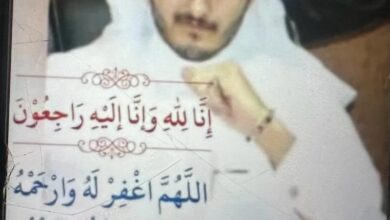 إِنَّا لِلَّهِ وَإِنَّا إِلَيْهِ رَاجِعُوْنَ
اللَّهُمَّ اغْفِرْ لَهُ وَارْحَمْهُ